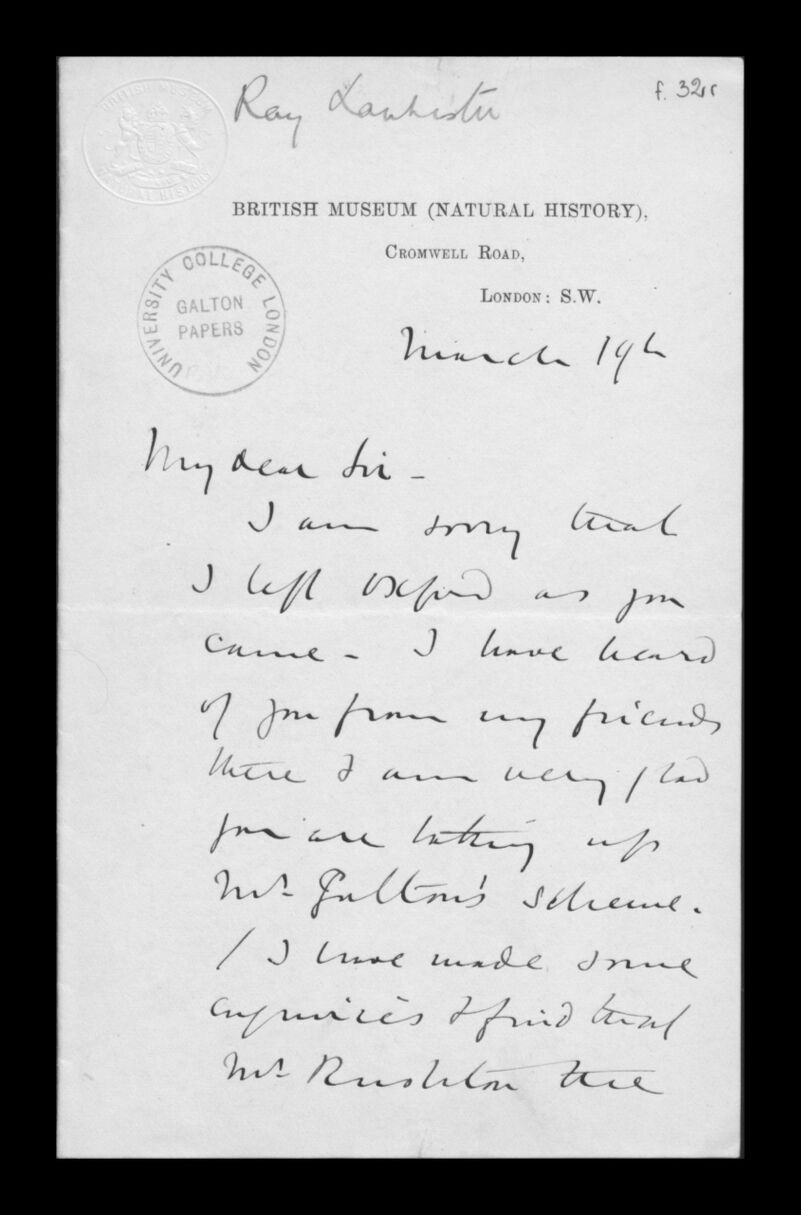 f. 32r
Ray Lankester
BRITISH MUSEUM
NATURAL HISTORY
BRITISH MUSEUM (NATURAL HISTORY),
CROMWELL ROAD,
LONDON: S.W.
UNIVERSITY COLLEGE LONDON
GALTON
PAPERS
March 19th
My dear Sir -
I am sorry that
I left Oxford as you
came - I have heard
of you from my friends
there & am very glad
you are taking up
Mr. Galton's scheme.
/ I have made some
enquiries & find that
Mr. Rushton the